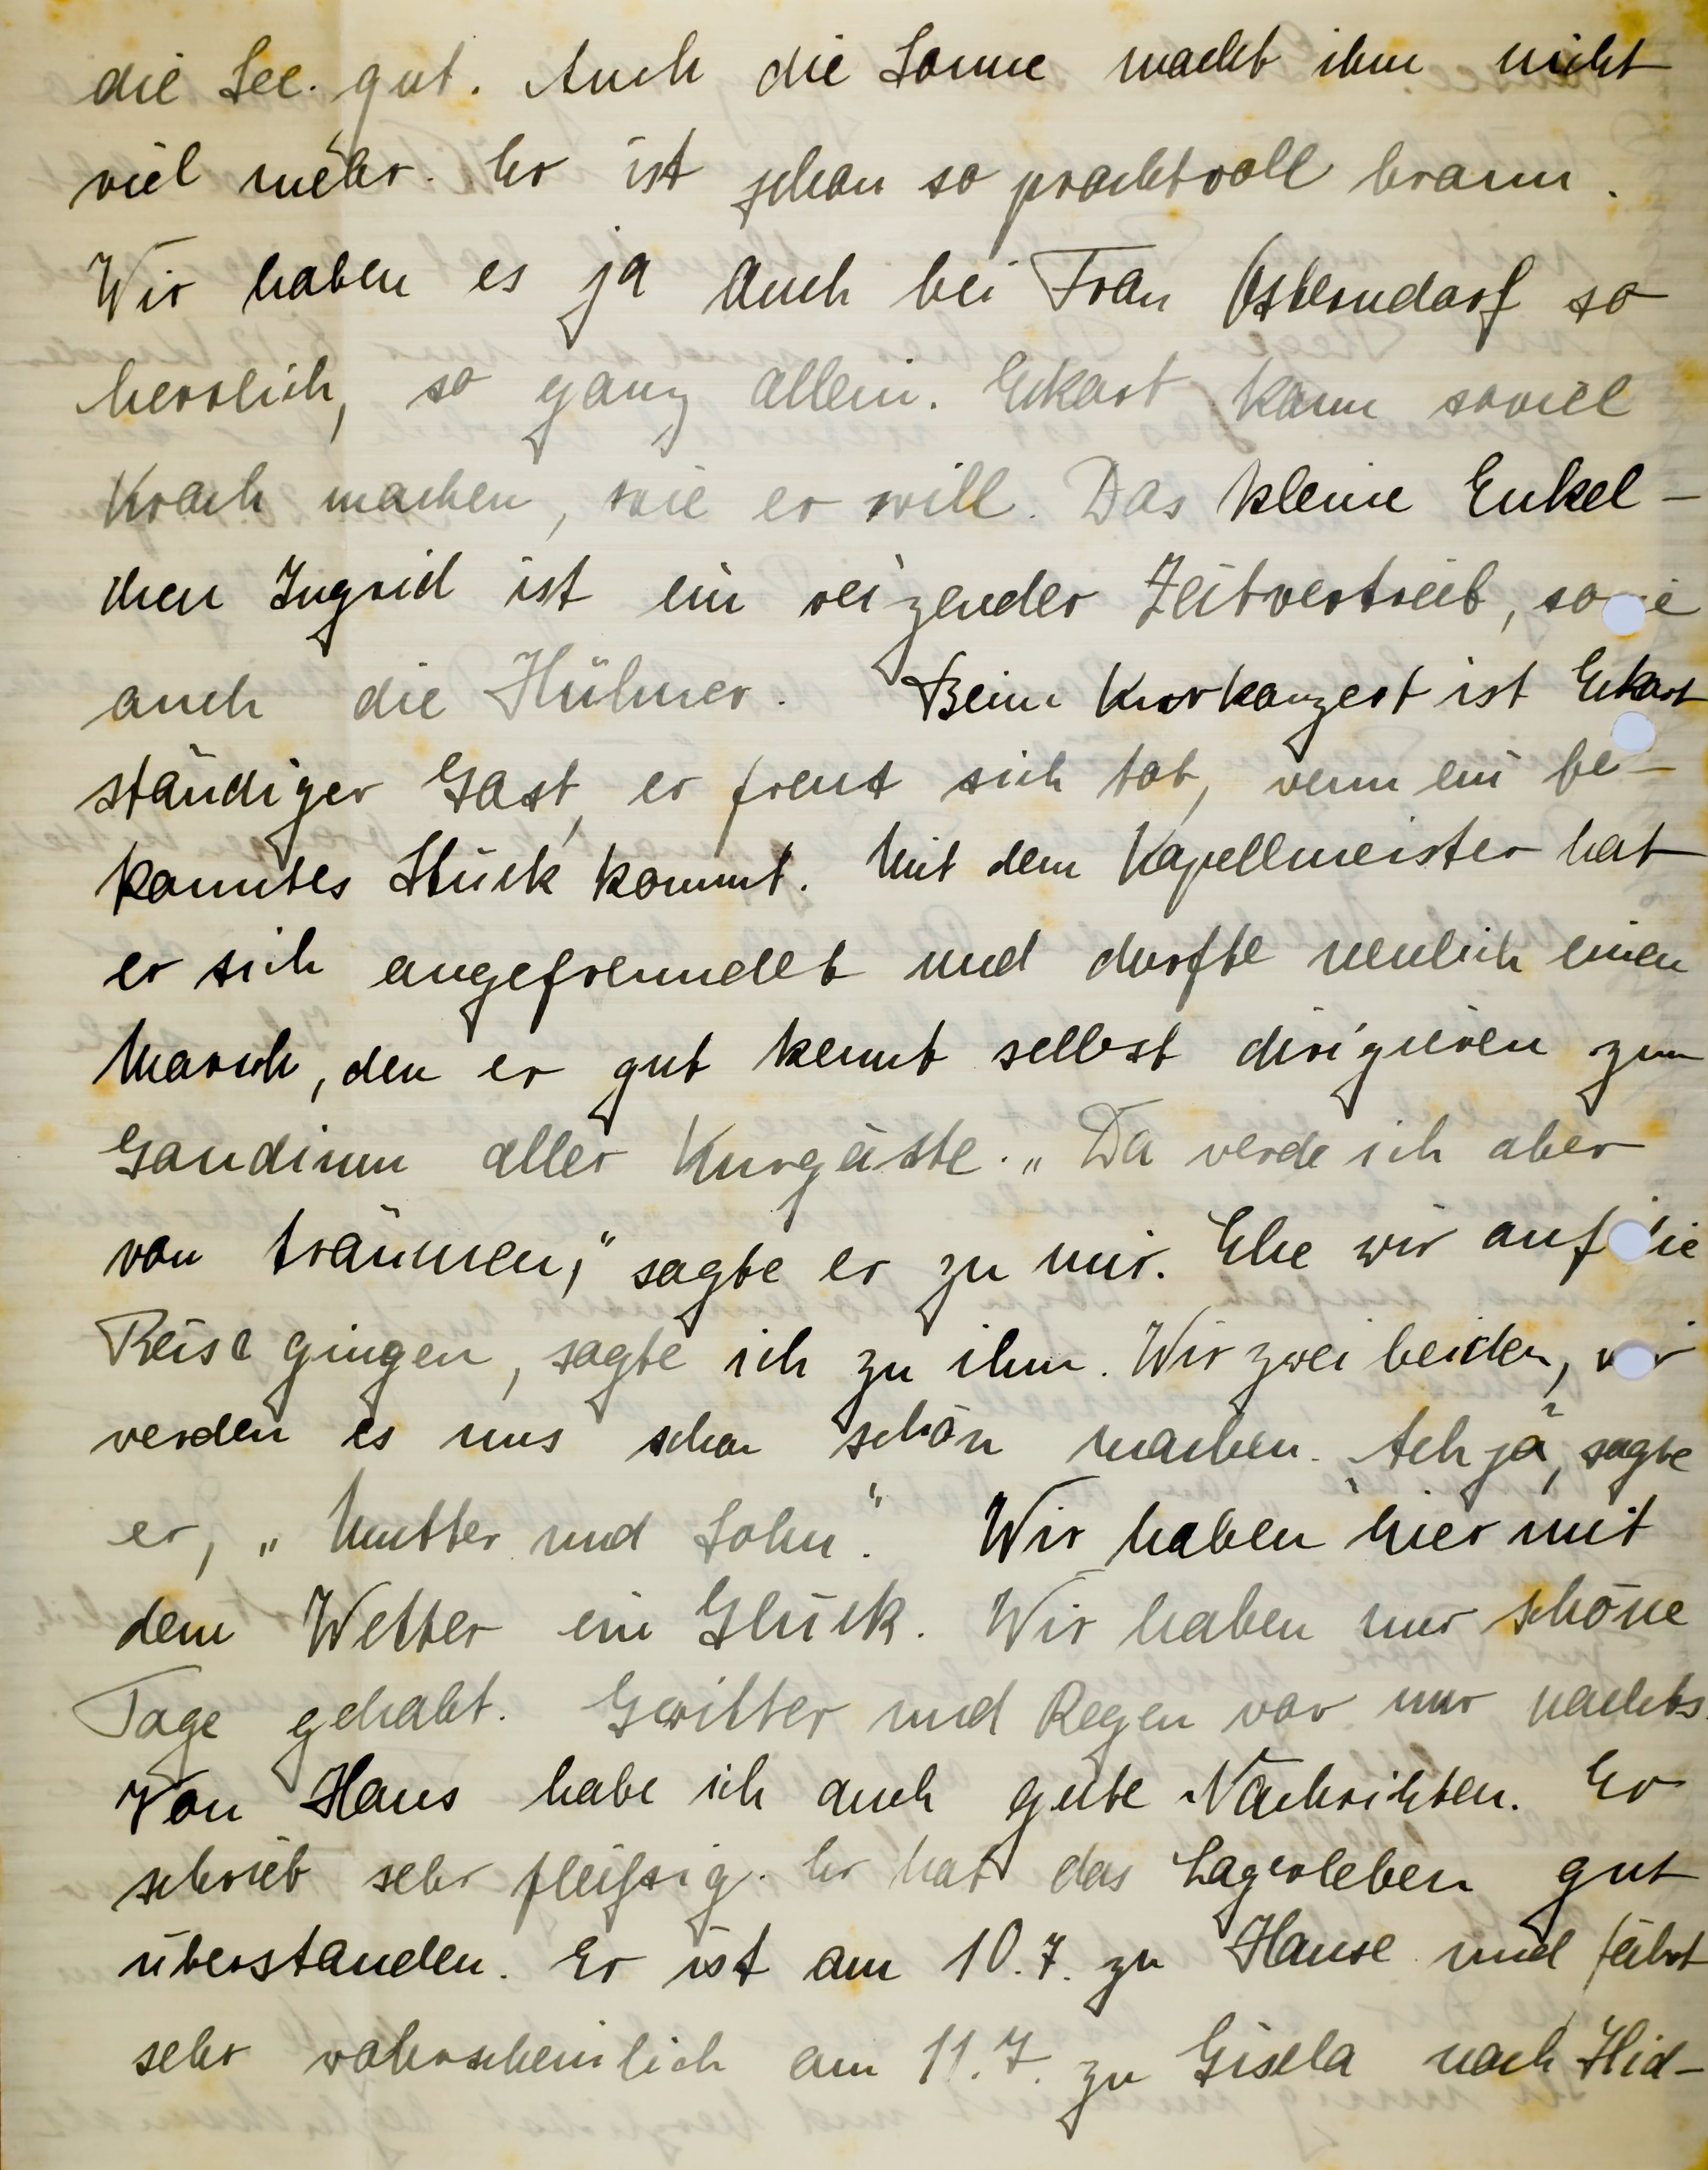 die See. gut. Auch die Sonne macht ihm nicht
viel mehr. Er ist schon so prachtvoll braun.
Wir haben es ja auch bei Frau Osterndorf so
herrlich, so ganz allein. Eckart kann soviel
Krach machen, wie er will. Das kleine Enkel-
chen Ingrid ist ein reizender Zeitvertreib, sowie
auch die Hühner. Beim Kurkonzert ist Eckart
ständiger Gast, er freut sich tot, wenn ein be-
kanntes Stück kommt. Mit dem Kapellmeister hat
er sich angefreundet und durfte neulich einen
Marsch, den er gut kennt selbst dirigieren zum
Gaudium aller Kurgäste. „Da werde ich aber
von träumen," sagte er zu mir. Ehe wir auf die
Reise gingen, sagte ich zu ihm. Wir zwei beiden, wir
werden es uns schon schön machen. „Ach ja", sagte
er, „Mutter und Sohn". Wir haben hier mit
dem Wetter ein Glück. Wir haben nur schöne
Tage gehabt. Gewitter und Regen war nur nachts.
Von Hans habe ich auch gute Nachrichten. Er
schrieb sehr fleißig. Er hat das Lagerleben gut
überstanden. Er ist am 10.7. zu Hause und fährt
sehr wahrscheinlich am 11.7. zu Gisela nach Hid-